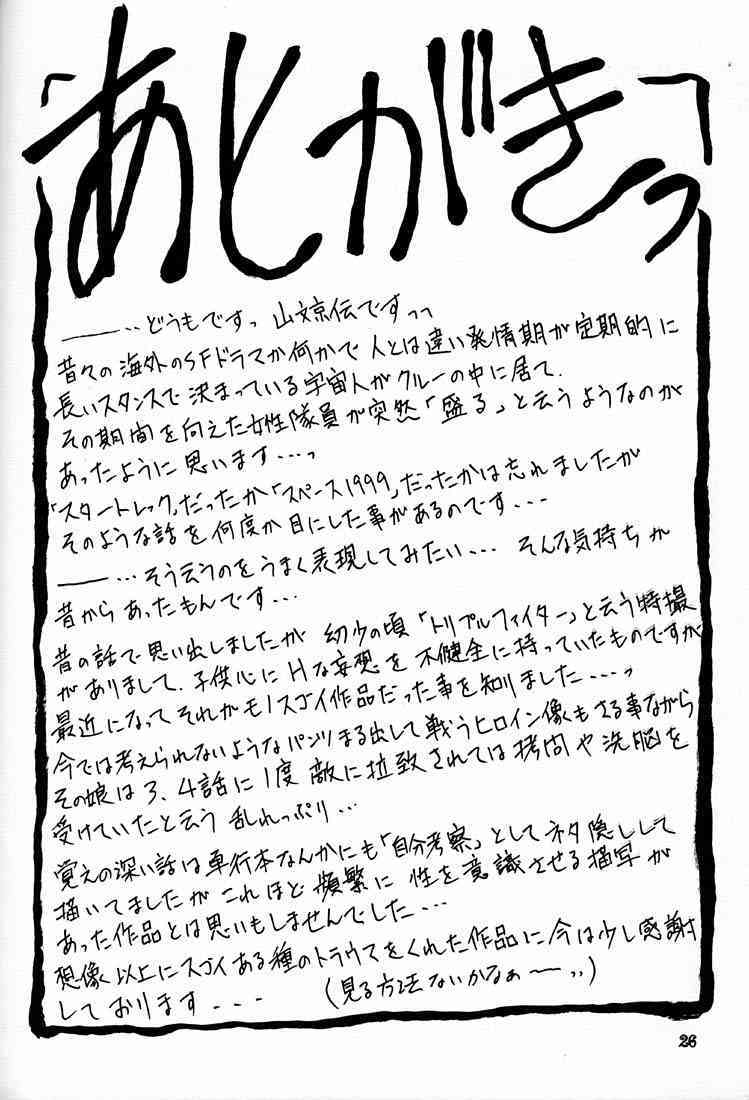 「あとがきっ」
―――‥どうもですっ 山文京伝ですっっ
昔々の海外のSFドラマか何かで人とは違い発情期が定期的に
長いスタンスで決まっている宇宙人がクルーの中に居て.
その期間を向えた女性隊員が突然「盛る」と云うようなのが
あったように思います・・・っ
「スタートレック」だったか「スペース1999」だったかは忘れましたが
そのような話を何度か目にした事があるのです・・・
―――・・・そう云うのをうまく表現してみたい・・・ そんな気持ちが
昔からあったもんです・・・
昔の話で思い出しましたが 幼少の頃「トリプルファイター」と云う特撮
がありまして、子供心にHな妄想を不健全に持っていたものですが
最近になってそれがモノスゴイ作品だった事を知りました・・・・っ
今では考えられないようなパンツまる出しで戦うヒロイン像もさる事ながら
その娘は3、4話に1度敵に拉致されては拷問や洗脳を
受けていたと云う乱れっぷり・・・
覚えの深い話は単行本なんかにも「自分考察」としてネタ隠しして
描いてましたがこれほど頻繁に性を意識させる描写が
あった作品とは思いもしませんでした・・・
想像以上にスゴイある種のトラウマをくれた作品に今は少し感謝
しております・・・ (見る方法ないかなぁ―‥)
26